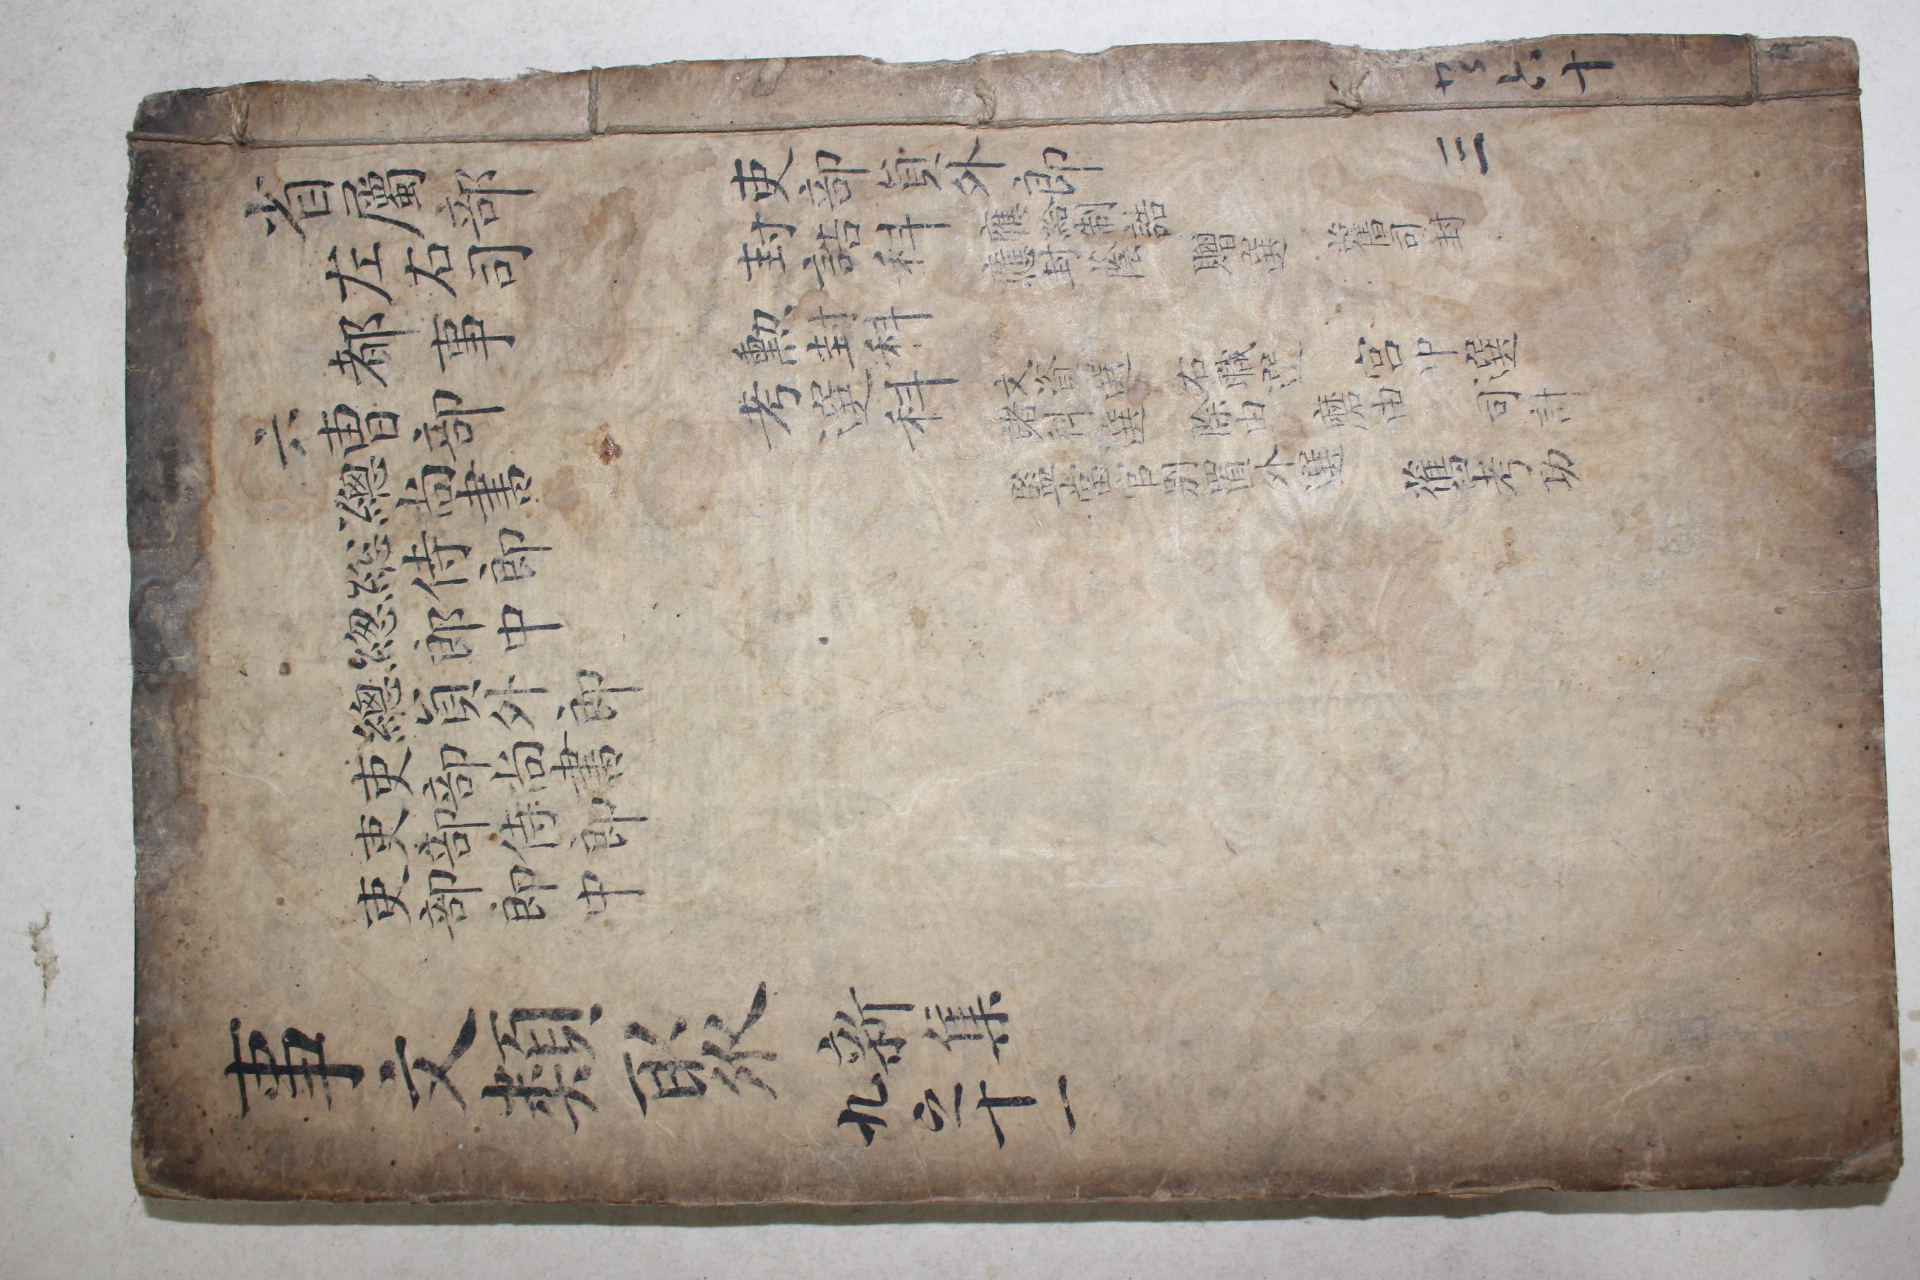 省屬部
左右司
都事
六曹部
緫尚書
総侍郎
緫郎中
緫員外郎
吏部尚書
吏部侍郎
吏部郎中
吏部員外郎
封誥科
應給制誥
應封蔭
贈選
舊司封
勲封科
考選科
文資選 右職選 宮中選
諸科選 除由 磨由 司計
監當官別置外選 舊考功
事文類聚
新集
九之十一
三
六十